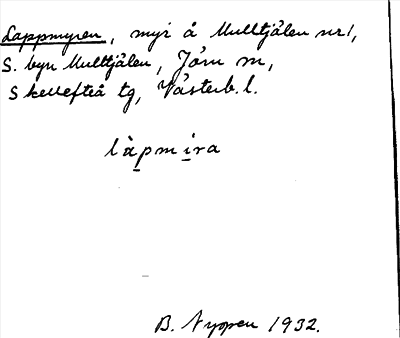 Lappmyren, myr å Mulltjälen nr 1,
S. byn Mulltjälen, Jörn m,
Skellefteå tg, Västerb. l.
làpmíra
B. Nyppen 1932.